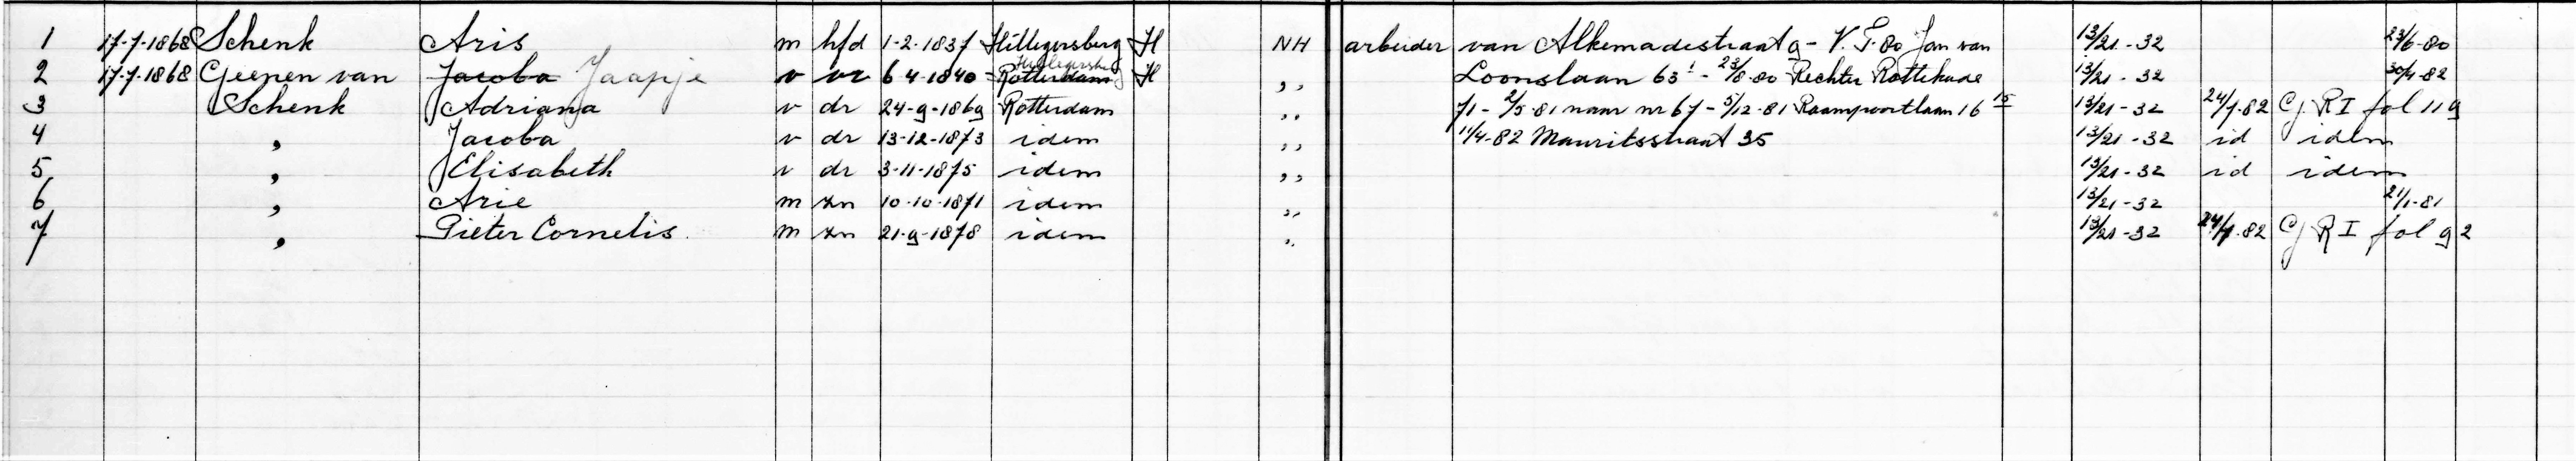 1 17-7-1868 Schenk Aris m hfd 1-2-1837 Hillegersberg H NH arbeider van Alkemadestraat 9 - V.T. 80 Jan van 13/21-32 23/6-80
2 17-7-1868 Geenen van Jacoba Jaapje v vr 6-4-1840 Rotterdam Hillegersberg H ,, Loonslaan 63 1 - 23/8-80 Rechter Rottekade 13/21-32 30/1-82
3 Schenk Adriana v dr 24-9-1869 Rotterdam ,, 71 - 2/5-81 naar nr 67 - 5/12-81 Raampoortlaan 16 15 13/21-32 24/7-82 G.R I fol 119
4 , Jacoba v dr 13-12-1873 idem ,, 11/4-82 Mauritsstraat 35 13/21-32 id idem
5 , Elisabeth v dr 3-11-1875 idem ,, 13/21-32 id idem
6 , Arie m zn 10-10-1871 idem ,, 13/21-32 21/1-81
7 , Pieter Cornelis m zn 21-9-1878 idem ,, 13/21-32 24/7-82 G R I fol 92